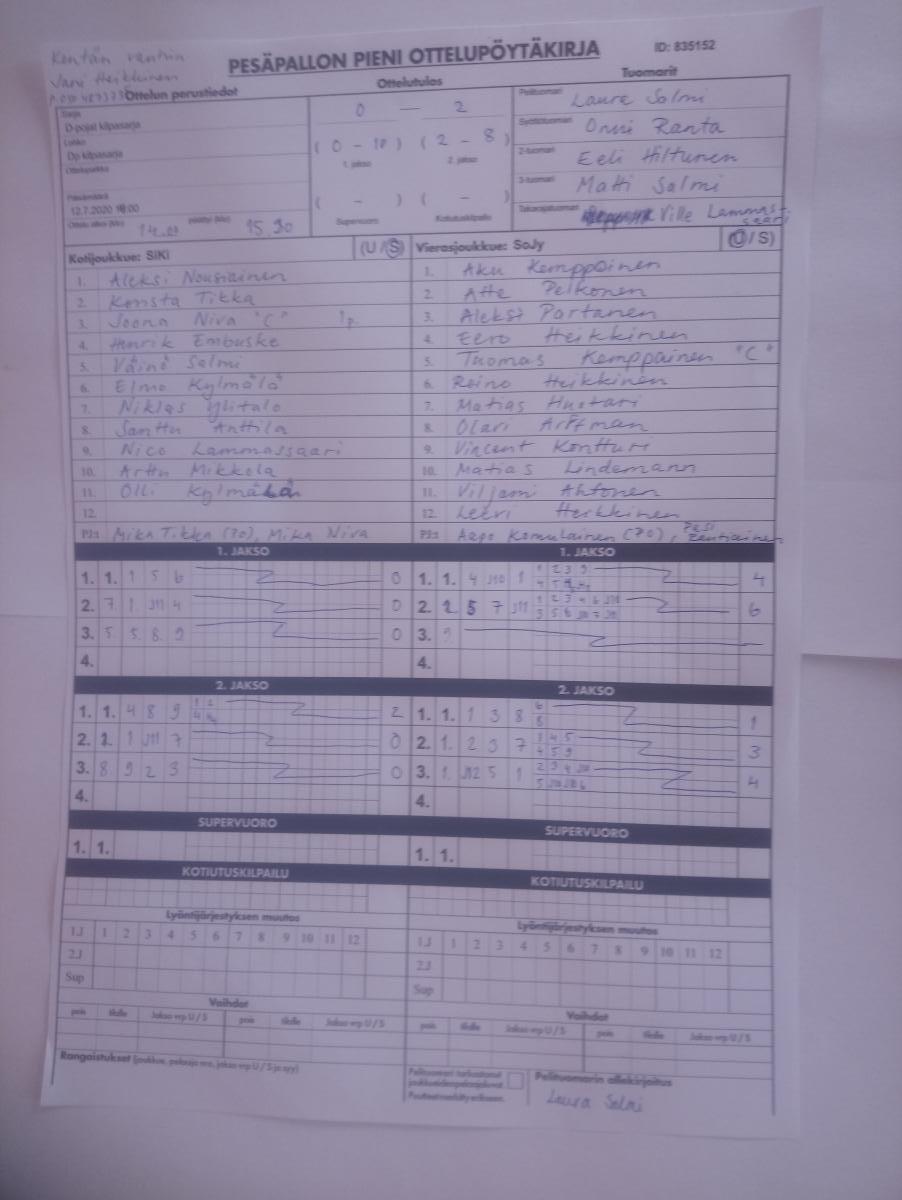 Kentän vanhin
Vani Heikkinen
PESÄPALLON PIENI OTTELUPÖYTÄKIRJA ID: 835152
Ottelun perustiedot Ottelutulos Tuomarit
Sarja
D-pojat kilpasarja
Lohko
Dp kilpasarja
Ottelupaikka
Päivämäärä
12.7.2020 18:00
Ottelu alkoi (klo) 14.01 päättyi (klo) 15.30
0 — 2
(0 - 10) (2 - 8)
1. jakso 2. jakso
( - ) ( - )
Supervuoro Kotiutuskilpailu
Pelituomari Laura Salmi
Syöttötuomari Onni Ranta
2-tuomari Eeli Hiltunen
3-tuomari Matti Salmi
Takarajatuomari Ville Lammassaari
Kotijoukkue: SiKi (U/S) Vierasjoukkue: SoJy (U/S)
1. Aleksi Nousiainen 1. Aku Kemppainen
2. Konsta Tikka 2. Atte Pelkonen
3. Joona Niva "C" 1p. 3. Aleksi Partanen
4. Henrik Embuske 4. Eero Heikkinen
5. Väinö Salmi 5. Tuomas Kemppainen "C"
6. Elmo Kylmälä 6. Reino Heikkinen
7. Niklas Ylitalo 7. Matias Hustari
8. Santtu Anttila 8. Olavi Arffman
9. Nico Lammassaari 9. Vincent Kontturi
10. Arttu Mikkola 10. Matias Lindemann
11. Olli Kylmälä 11. Viljami Ahtonen
12. 12. Leevi Heikkinen
PJ:t Mika Tikka (70), Mika Niva PJ:t Aapo Komulainen (70), Pasi Rantiainen
1. JAKSO 1. JAKSO
1. 1. 1 5 6 0 1. 1. 4 J10 1 4
2. 7. 1. J11 4 0 2. 2 5 7 J11 6
3. 5. 5. 8. 9 0 3. 9
4. 4.
2. JAKSO 2. JAKSO
1. 1. 4 8 9 2 1. 1. 1 3 8 6 8 1
2. 2. 1 J11 7 0 2. 1. 2 3 7 3 4 5 4 5 9 3
3. 8. 9 2 3 0 3. 1. J12 5 1 4
4. 4.
SUPERVUORO SUPERVUORO
1. 1. 1. 1.
KOTIUTUSKILPAILU KOTIUTUSKILPAILU
Lyöntijärjestyksen muutos Lyöntijärjestyksen muutos
1J 1 2 3 4 5 6 7 8 9 10 11 12 1J 1 2 3 4 5 6 7 8 9 10 11 12
2J 2J
Sup Sup
Vaihdot Vaihdot
pois tilalle Jakso vrp U / S pois tilalle Jakso vrp U / S pois tilalle Jakso vrp U / S pois tilalle Jakso vrp U / S
Rangaistukset (joukkue, pelaaja nro, jakso vrp U / S ja syy)
Pelituomari tarkastanut
joukkueiden pelaajaluvat.
Puutteet merkitty erikseen.
Pelituomarin allekirjoitus
Laura Salmi